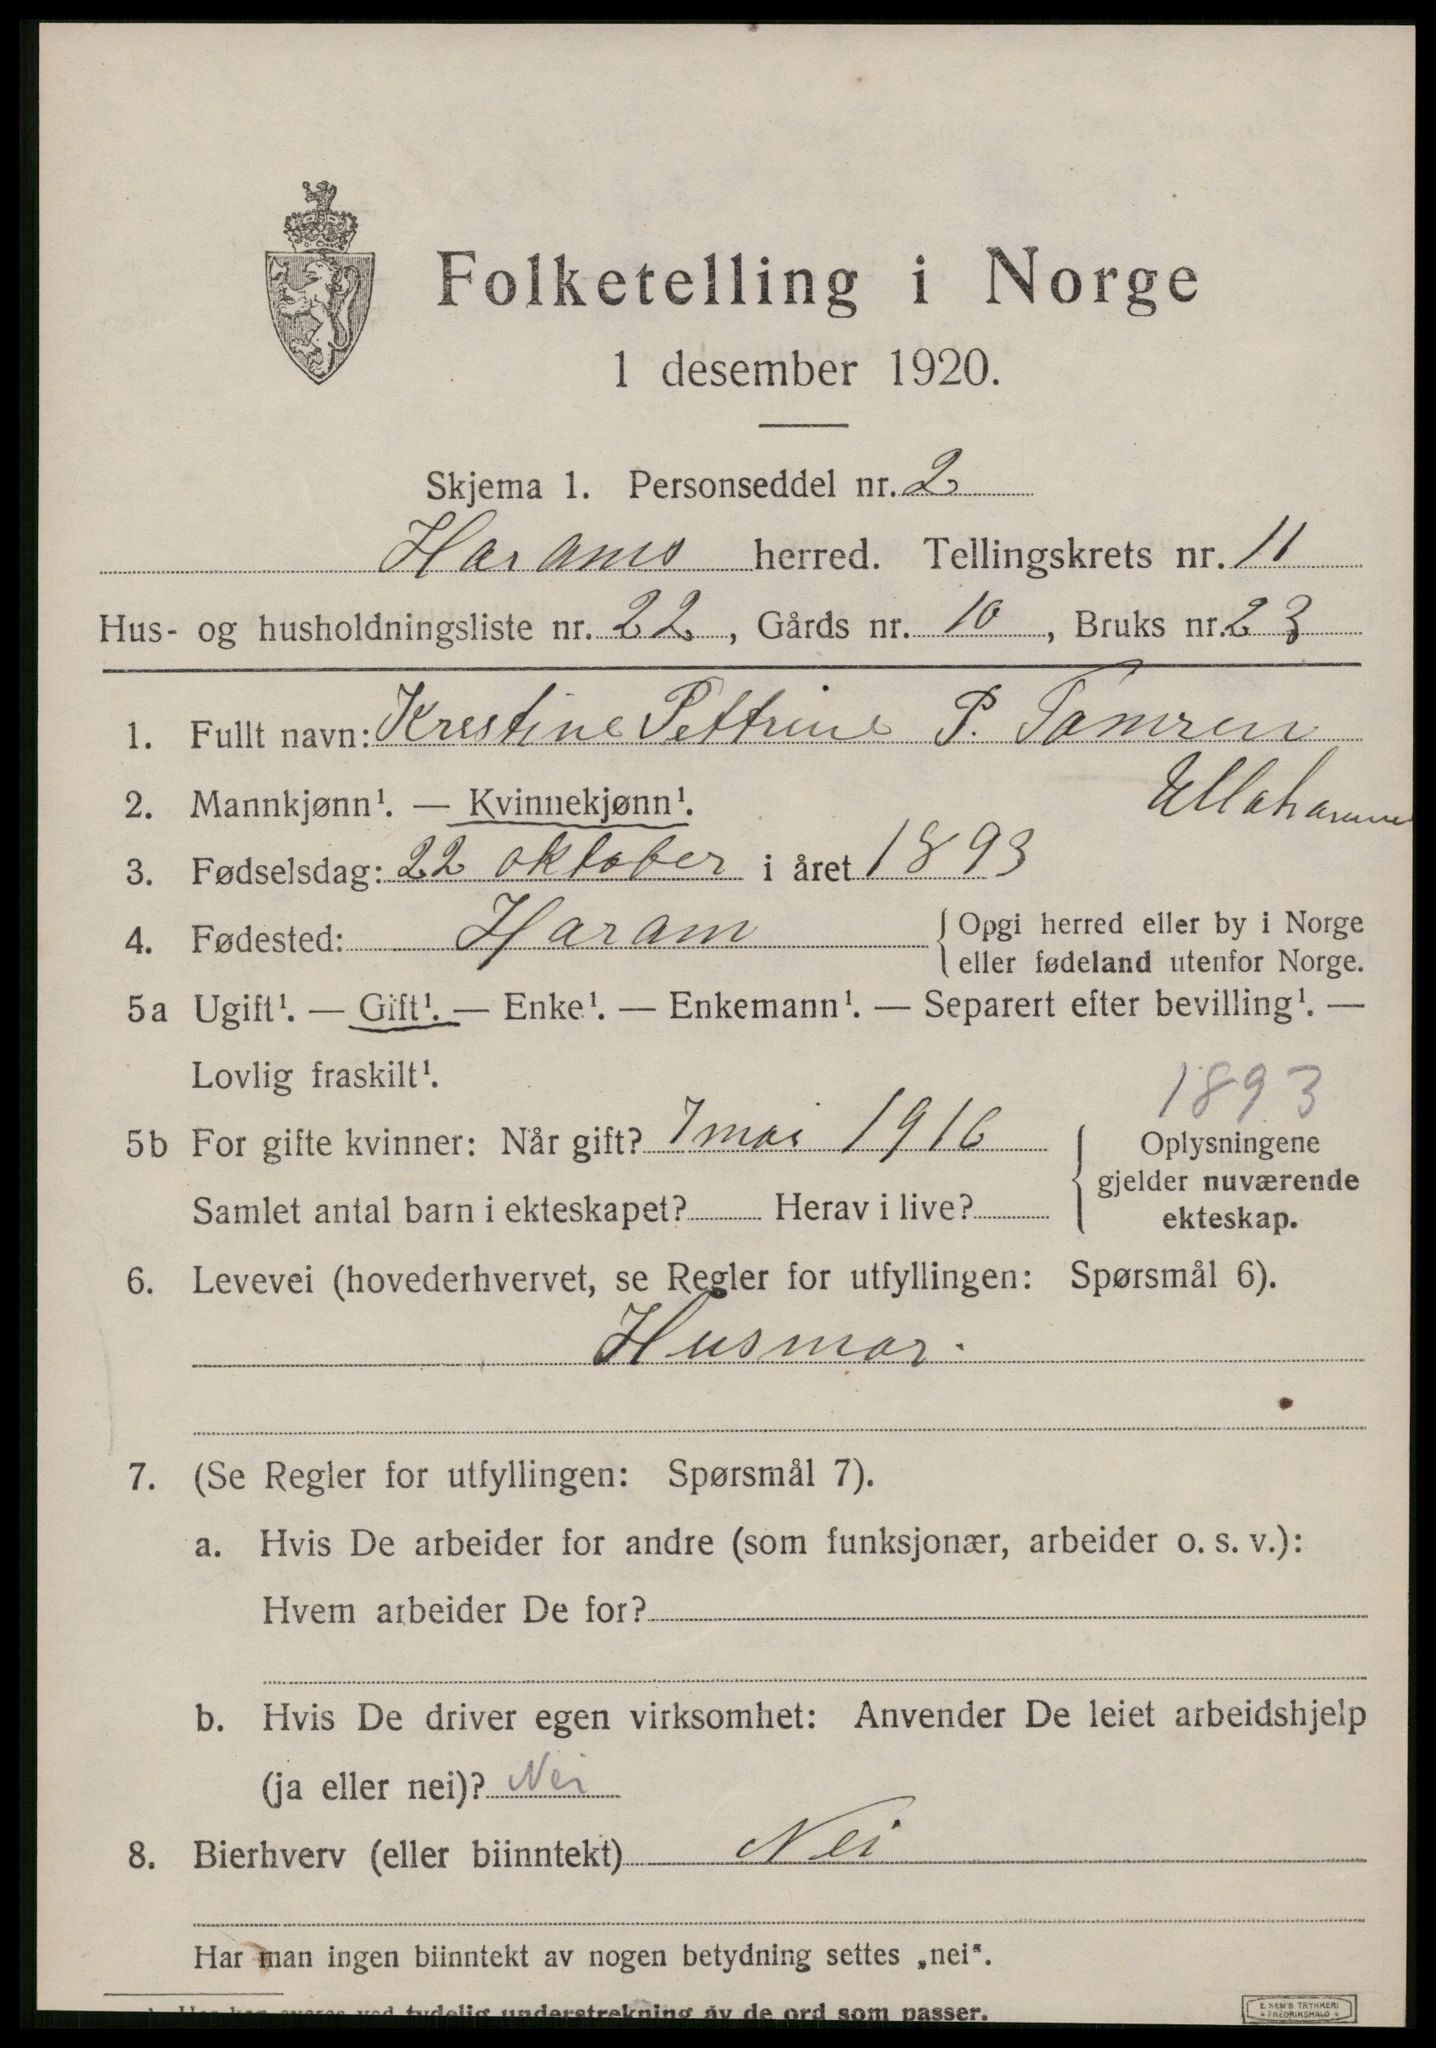 Folketelling i Norge
1 desember 1920.
Skjema 1. Personseddel nr. 2
Harams herred. Tellingskrets nr. 11
Hus- og husholdningsliste nr. 22, Gårds nr. 10, Bruks nr. 23
1. Fullt navn: Krestine Pettrine P. Tamren
Ullahammer
2. Mannkjønn¹. — Kvinnekjønn¹.
3. Fødselsdag: 22 oktober i året 1893
4. Fødested: Haram { Opgi herred eller by i Norge
eller fødeland utenfor Norge.
5a Ugift¹. — Gift¹. — Enke¹. — Enkemann¹. — Separert efter bevilling¹. —
Lovlig fraskilt¹.
1893
5b For gifte kvinner: Når gift? 7 mai 1916
Samlet antal barn i ekteskapet? Herav i live?
{ Oplysningene
gjelder nuværende
ekteskap.
6. Levevei (hovederhvervet, se Regler for utfyllingen: Spørsmål 6).
Husmor.
7. (Se Regler for utfyllingen: Spørsmål 7).
a. Hvis De arbeider for andre (som funksjonær, arbeider o. s. v.):
Hvem arbeider De for?
b. Hvis De driver egen virksomhet: Anvender De leiet arbeidshjelp
(ja eller nei)? Nei
8. Bierhverv (eller biinntekt) Nei
Har man ingen biinntekt av nogen betydning settes „nei“.
¹ Her kan svares ved tydelig understrekning av de ord som passer.
E. SEM'S TRYKKERI
FREDRIKSHALD